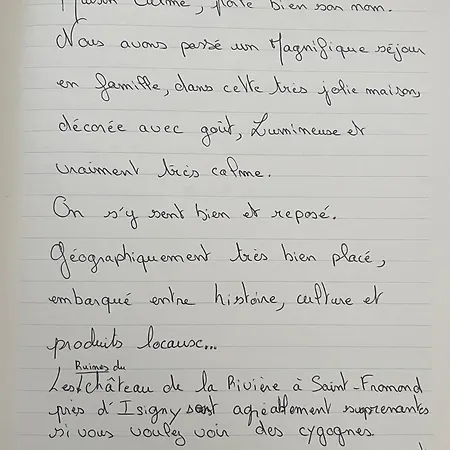 Maison Calme, porte bien son nom.
Nous avons passé un Magnifique séjour
en famille, dans cette très jolie maison,
décorée avec goût, Lumineuse et
vraiment très calme.
On s'y sent bien et reposé.
Géographiquement très bien placé,
embarqué entre histoire, culture et
produits locaux...
Ruines du
Les château de la Rivière à Saint-Fromond
près d'Isigny sont agréablement surprenantes
si vous voulez voir des cygognes